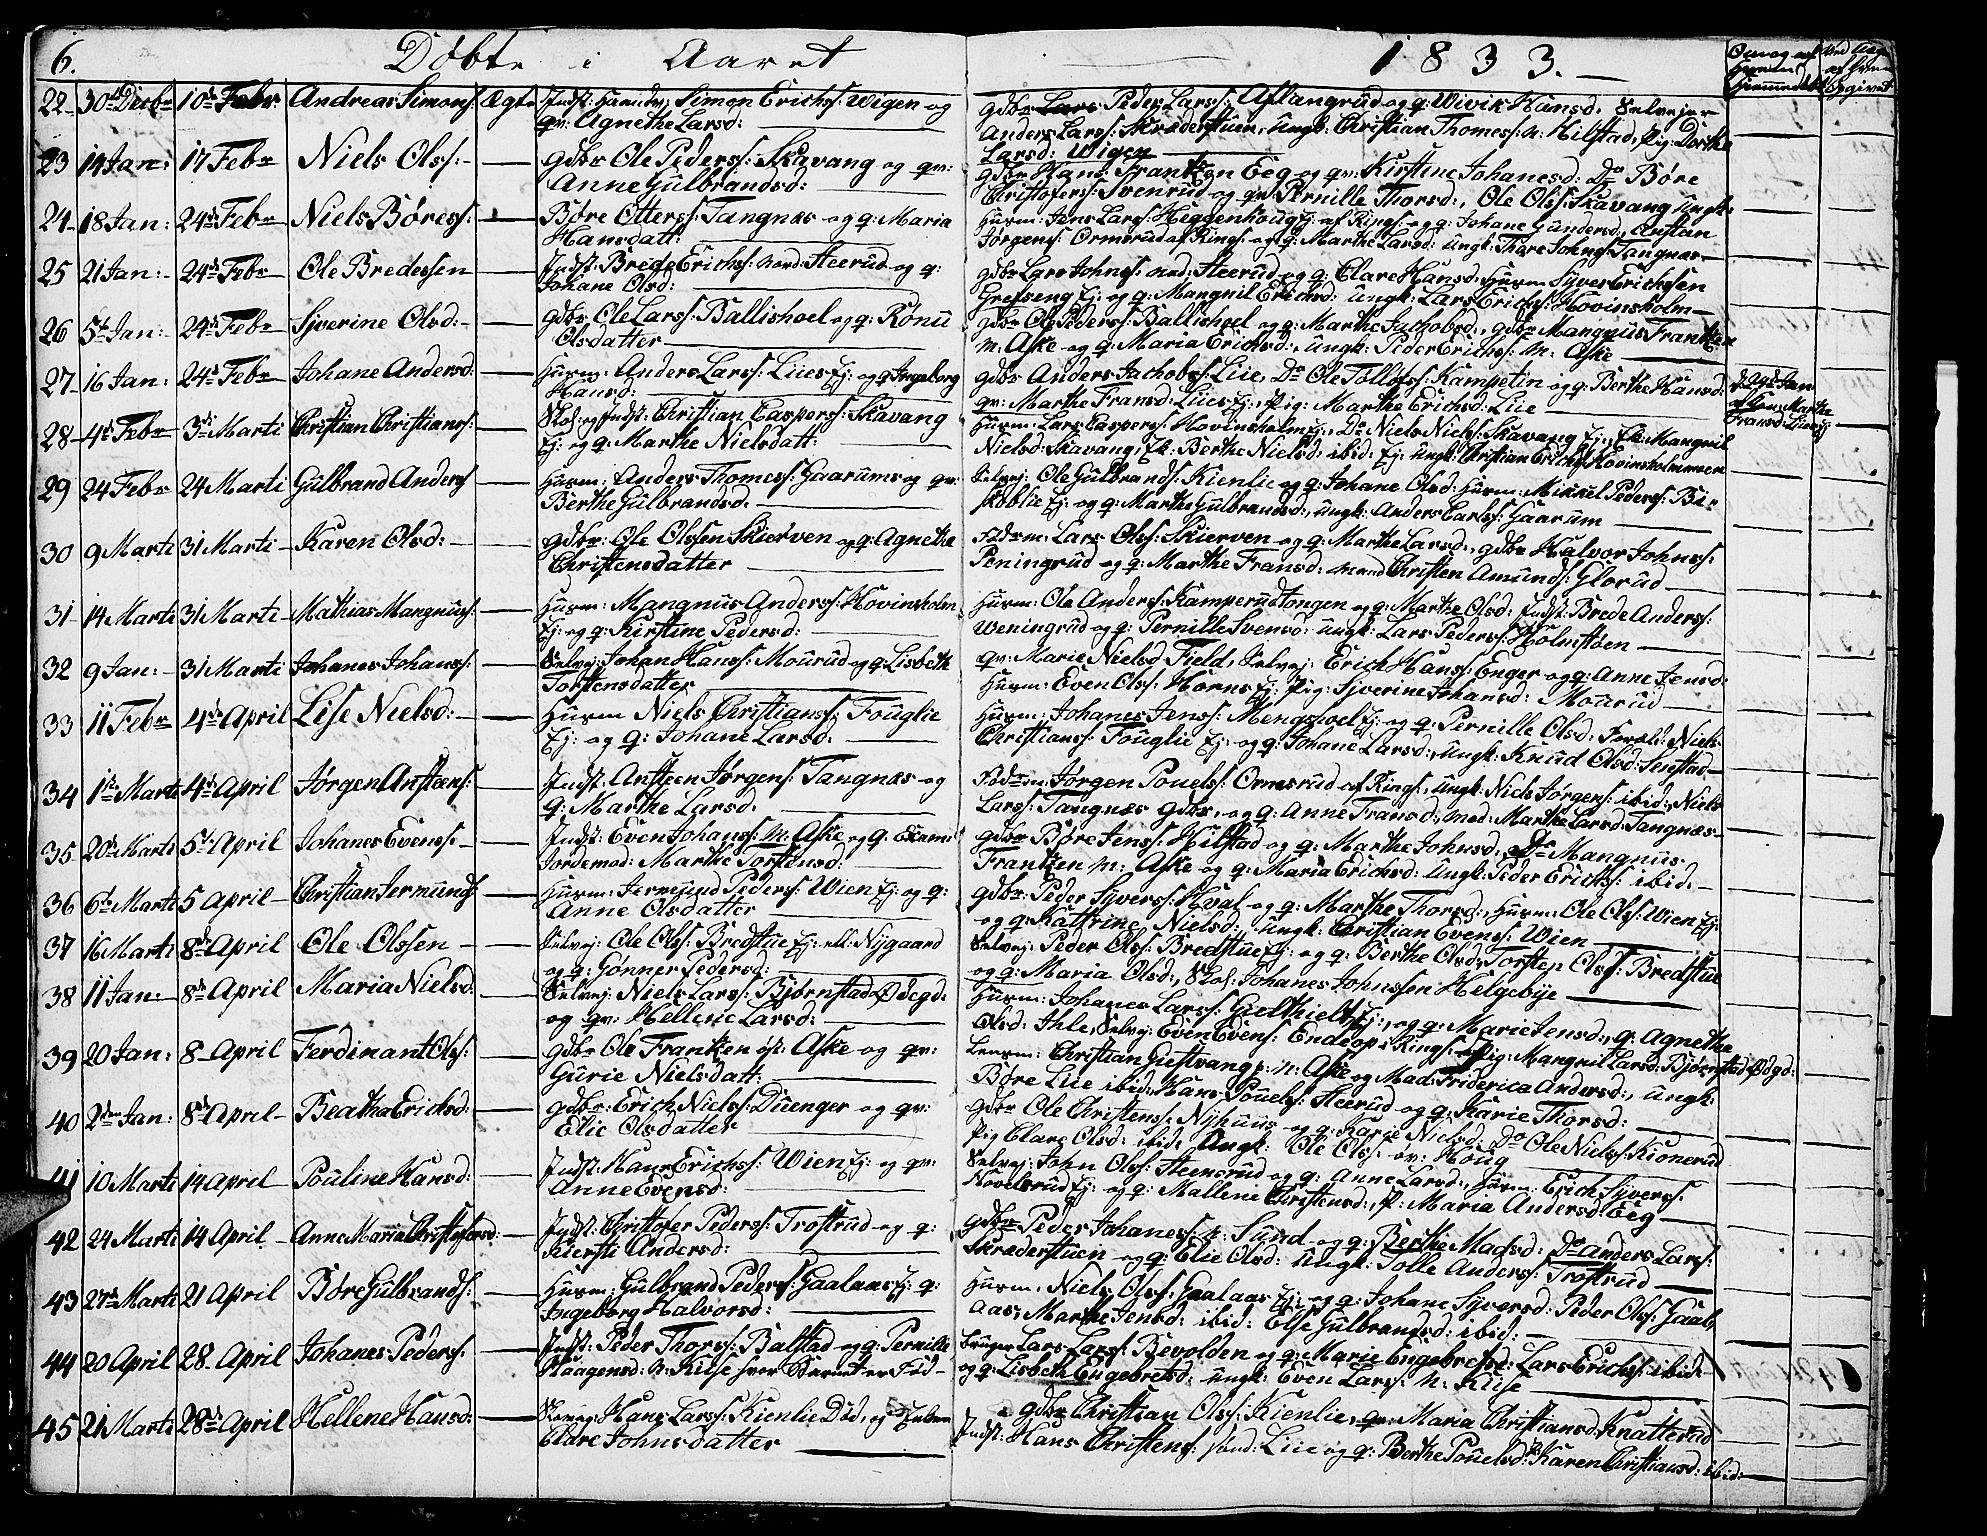 6. Döbte i Aaret 1833.
22 30te Decbr 10de Febr Andreas Simons: Ægte Indst: Simon Erichs: Wigen og
gv: Agnethe Larsd:
gdbr Lars Peder Larss: Aflangrud og q: Wivik Hansd: Selvejer
Anders Larss: Skrederstuen, Ungk: Christian Thomess: n: Hilstad, Pig: Dorthe
Larsd: Wigen
23 14 Jan: 17 Febr Niels Olss: gdbr Ole Pederss: Skavang og qv:
Anne Gulbrandsd:
gdbr Hans Frantzen Eeg og qv: Kirstine Johanesd: Do Børe
Christofers: Svenrud og qv: Pernille Thorsd:, Ole Olss: Skavang ungk:
24 18 Jan: 24de Febr Niels Børess: Børe Otterss: Tangnæs og q: Maria
Hansdatt:
Husm: Jens Larss: Heggenhoug Ej: af Rings: og q: Johane Gundersd:, Anstan
Jørgens: Ormsrud af Rings: og q: Marthe Larsd: Ungk: Thore Johns: Tangnæs
25 21 Jan: 24de Febr Ole Bredessen Indst: Brede Erichs: nord: Steerud og q:
Johane Olsd:
gdbr Lars Johnss: nod: Steerud og q: Clare Hansd: Husm Syver Erichsen
Grefseng Ej: og q: Mangnil Erichsd: Ungk: Lars Erichs: Hovinsholm
26 5te Jan: 24de Febr Syverine Olsd: gdbr Ole Larss: Ballishoel og q: Rønu
Olsdatter
gdbr Ole Pederss: Ballishoel og q: Marthe Jachobsd:, gdbr Mangnus Frantzen
n: Aske og q: Maria Erichsd:, Ungk: Peder Erichs: n: Aske
27 16 Jan: 24de Febr Johane Andersd: Husm: Anders Larss: Lies Ej: og q Ingeborg
Hansd:
gdbr Anders Jachobs: Lie, Do Ole Tollofs: Kampetin og q: Berthe Hansd:
gv: Marthe Fransd: Lies Ej:, Pig: Marthe Erichsd: Lie
28 4de Febr 3de Marti Christian Christians: Christian Caspers: Skavang
Ej: og q: Marthe Nielsdatt:
Husm: Lars Caspers: Hovinsholm Ej: Do Niels Niels: Skavang Ej:, Mangnil
Nielsd: Skavang Ej: Berthe Nielsd: ibid: Ej: Ungk: Christian Erichs: Hovinsholm
29 24 Febr 24 Marti Gulbrand Anders: Husm: Anders Thomess: Gaarum og qv:
Berthe Gulbrandsd:
Selvej: Ole Gulbrands: Kienlie og q: Johane Olsd: Husm: Mikkel Pederss: Bi-
skoblie Ej: og q: Marthe Gulbrandsd:, Ungk: Anders Larss: Gaarum
30 9 Marti 31 Marti Karen Olsd: gdbr: Ole Olssen Skierven og q: Agnethe
Christensdatter
Lars Olss: Skierven og q: Marthe Larsd:, gdbr Halvor Johnss:
Peningrud og q: Marthe Fransd: Christen Amunds: Glorud
31 14 Marti 31 Marti Mathias Mangnus: Husm: Mangnus Anders: Hovinsholm
Ej: og q: Kirstine Pedersd:
Husm: Ole Anders: Kamperudtongen og q: Marthe Olsd: Indst: Brede Anders:
Weningrud og q: Pernille Svensd: Ungk: Lars Peders: Holmstøen
32 9 Jan: 31 Marti Johanes Johans: Selvej: Johan Hans: Mourud og q: Lisbeth
Torstensdatter
qv: Marie Nielsd Field, Selvej: Erich Hans: Enger og q: Anne Jensd:
Husm: Even Olss: Horns Ej: Pig: Syverine Johansd: Mourud
33 11 Febr 4de April Lise Nielsd: Husm Niels Christians: Fouglie
Ej: og q: Johane Larsd:
Husm: Johanes Jens: Mengshoel Ej: og q: Pernille Olsd: Foræld: Niels
Christians: Fouglie Ej: og q: Johane Larsd:, Ungk: Knud Olsd: Senstad
34 1ste Marti 4de April Jørgen Anstans: Indst: Ansteen Jørgens: Tangnæs og
q: Marthe Larsd:
Jørgen Pouels: Ormsrud af Rings:, Ungk: Niels Jørgens: ibid:, Niels
Larss: Tangnæs gdbr, og q: Anne Fransd:, Marthe Larsd: Tangnæs
35 20de Marti 5te April Johanes Evens: Indst: Even Johans: n: Aske og q: Exam:
Jordemod: Marthe Torstensd:
gdbr Børe Jens: Hilstad og q: Marthe Johnsd:, Do Mangnus
Frantzen n: Aske og q: Maria Erichsd: Ungk: Peder Erichs: ibid:
36 6te Marti 5 April Christian Jermunds: Husm: Jermund Peders: Wien Ej: og q:
Anne Olsdatter
gdbr: Peder Syvers: Hval og q: Marthe Thorsd:, Husm: Ole Olss: Wien Ej:
og q: Kathrine Nielsd:, Ungk: Christian Evens: Wien
37 16 Marti 8de April Ole Olssen Selvej: Ole Olss: Bredstue Ej: ell: Nygaard
og q: Gønner Pedersd:
Selvej: Peder Olss: Bredstue Ej: og q: Berthe Olsd:, Torsten Olss: Bredstue
og q: Maria Olsd:, Johanes Johnssen Helgebye
38 11 Jan: 8de April Maria Nielsd: Selvej: Niels Larss: Bjørnstad Ødegd:
og qv: Hellene Larsd:
Husm: Johanes Larss: Gielthiels Ej:, og q: Marie Jensd:, q: Agnethe
Olsd: Ihle, Selvej: Even Evens: Endeop i Rings: Pig: Mangnil Larsd: Bjørnstad Ødgd:
39 20 Jan: 8 April Ferdinant Ols: gdbr Ole Frantzen øst: Aske og qv:
Gurie Nielsdatt:
Lensm: Christian Giestvang p: n: Aske og Mad: Friderica Andersd:, Ungk:
Børe Lie ibid:, Hans Pouels: Steerud og q: Karie Thorsd:
40 2den Jan: 8de April Beatha Erichsd: gdbr: Erich Niels: Duenger og qv:
Elie Olsdatter
gdbr Ole Christens: Nyhuus og q: Karie Nielsd: Do Ole Niels: Kionerud
Pig Clare Olsd: ibid: Ungk: Ole Olss: ov: Houg
41 10 Marti 14 April Pouline Hansd: Indst: Hans Erichs: Wien Ej: og qv:
Anne Evensd:
Selvej: John Olss: Steensrud og q: Anne Larsd:, Husm: Erich Syvers:
Hovelsrud Ej: og q: Mallene Christensd:, P: Maria Andersd: Eeg
42 24 Marti 14 April Anne Maria Christofersd: Indst: Christofer Peders: Trostrud og q:
Kiersti Andersd:
gdbr Peder Johanes: n: Sund og q: Berthe Madsd: Do Anders Larss:
Skrederstuen og q: Elie Olsd: Ungk: Tolle Anders: Trostrud
43 27de Marti 21 April Børe Gulbrands: Husm: Gulbrand Peders: Gaalaas Ej: q:
Ingeborg Halvorsd:
Husm: Niels Olss: Gaalaas Ej: og q: Johane Syversd: Peder Olss: Gaal-
aas, Marthe Jensd: ibid: Else Gulbrandsd: ibid:
44 20 April 28 April Johanes Peders: Indst: Peder Thors: Balstad og q: Pernille
Haagensd: n: Kise hvor Barnet er Fød
Bruger Lars Larss: Bevolden og q: Marie Engebretsd: Lars Erichs: ibid:
og q: Lisbeth Engebretsd: Ungk: Even Larss: n: Kise
45 21 Marti 28de April Hellene Hansd: Hans Larss: Kienlie Død, og
Clare Johnsdatter
gdbr Christian Olss: Kienlie, qv: Maria Christiansd: Knatterud
Indst: Hans Christens: sønd: Lie og q: Berthe Pouelsd: Karen Christiansd: ibid: